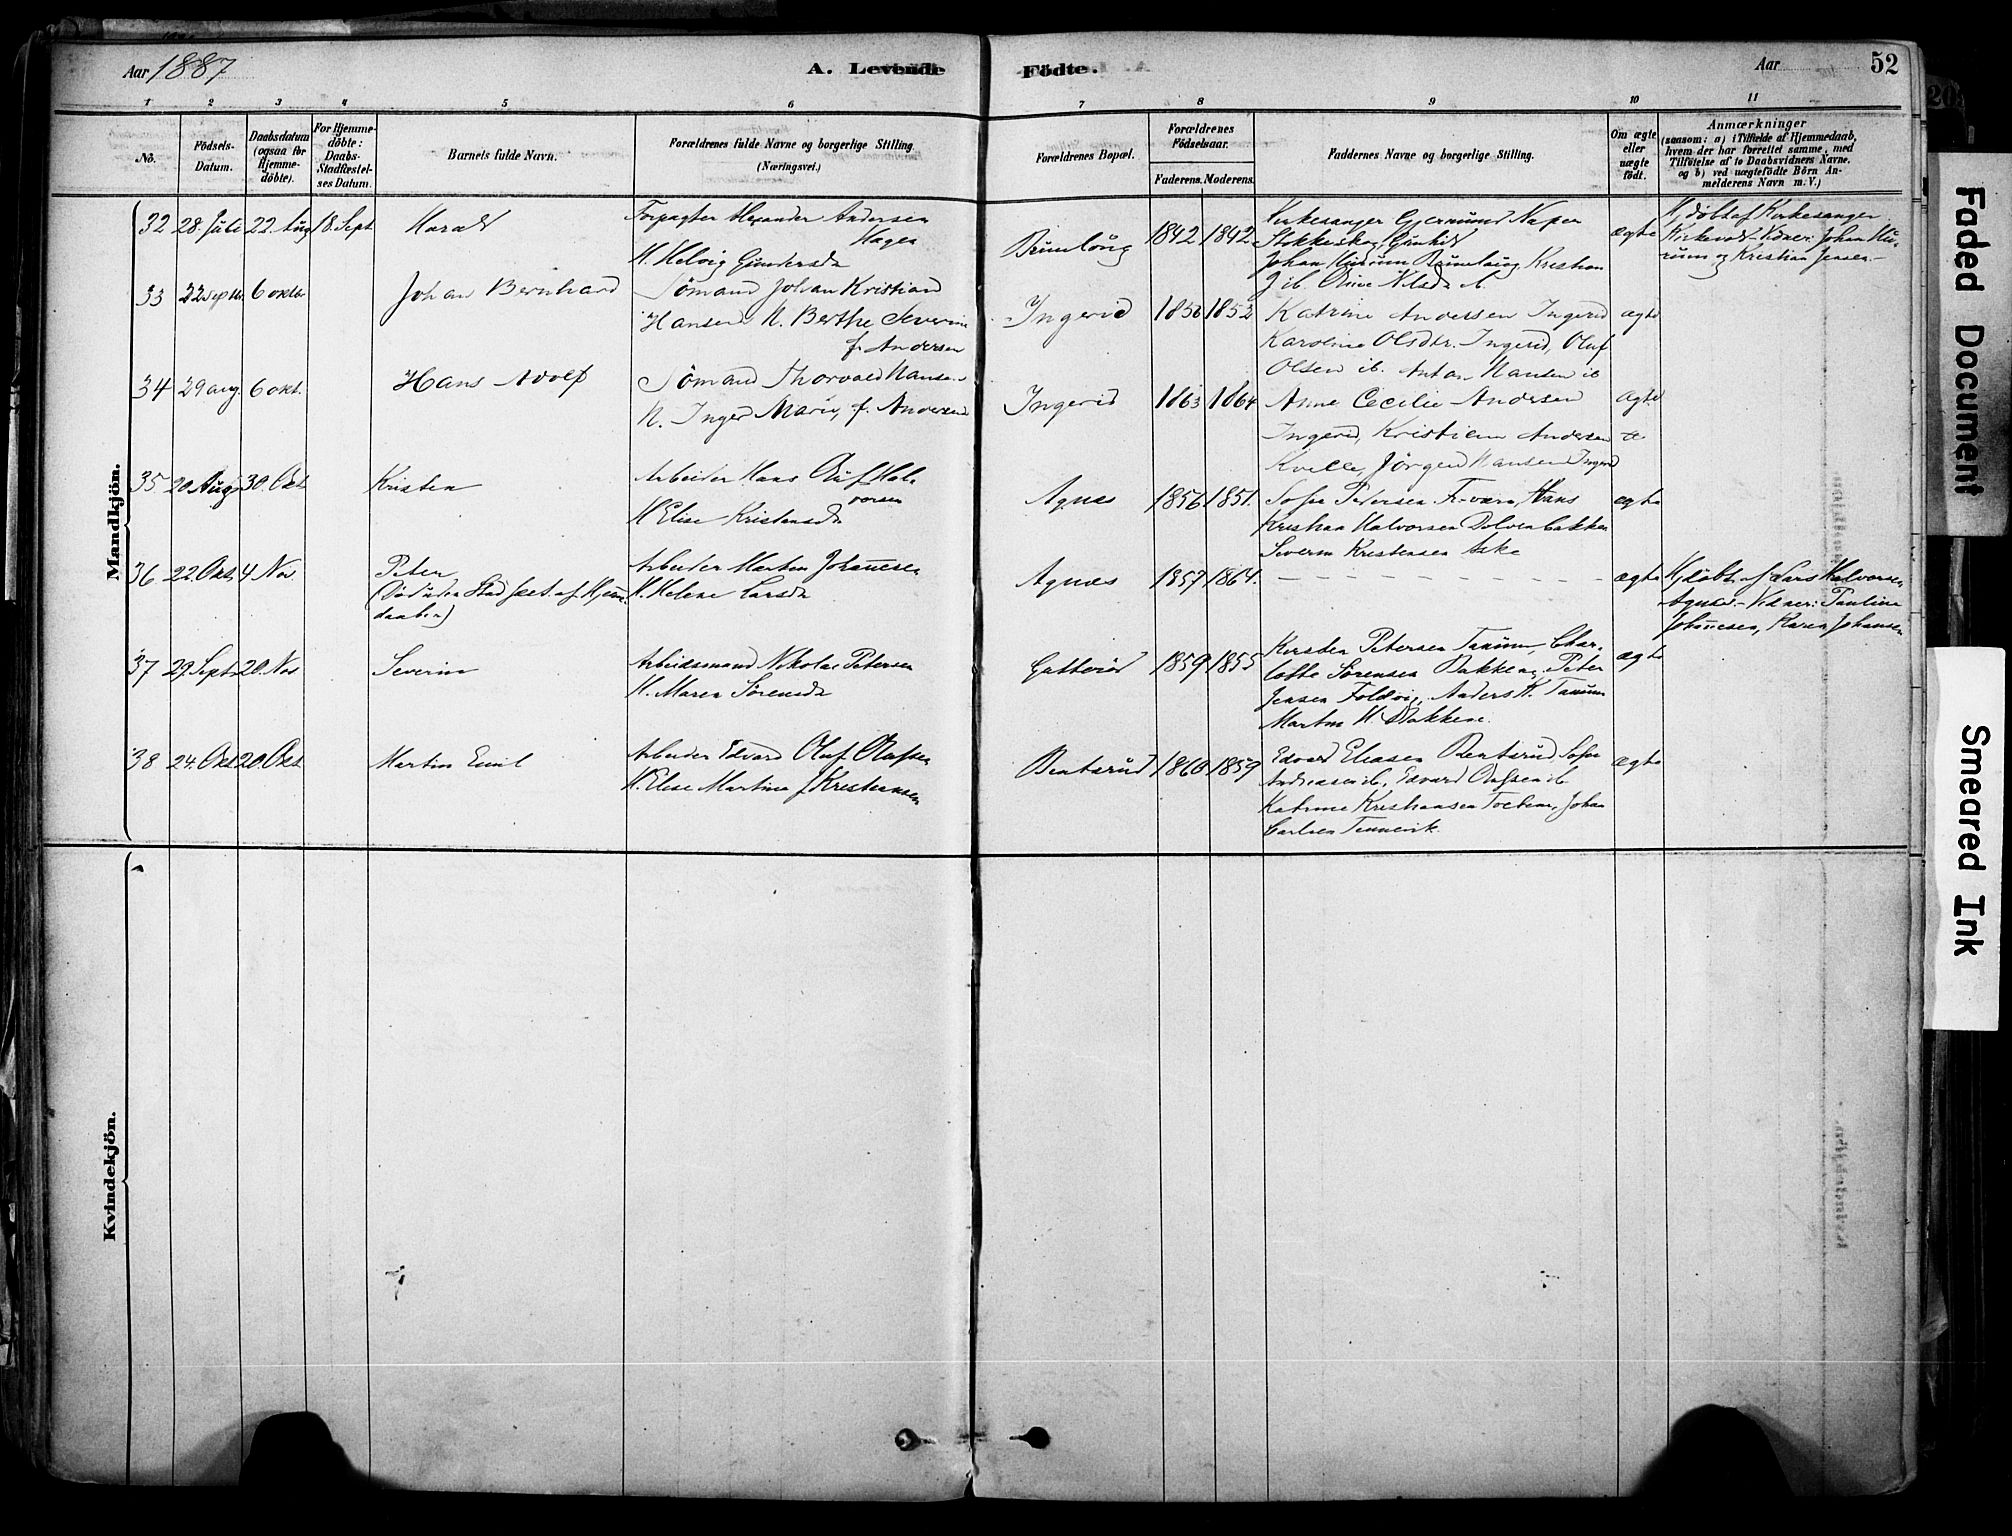 Aar 1887
A. Levende
Födte.
Aar
52
1 2 3 4 5 6 7 8 9 10 11
No.
Födsels-
Datum.
Daabsdatum
(ogsaa for
Hjemme-
döbte).
For Hjemme-
döbte:
Daabs-
Stadfæstel-
ses Datum.
Barnets fulde Navn.
Forældrenes fulde Navne og borgerlige Stilling
(Næringsvei.)
Forældrenes Bopæl.
Forældrenes
Födselsaar.
Faderens. Moderens.
Faddernes Navne og borgerlige Stilling.
Om ægte
eller
uægte
födt.
Anmærkninger
(saasom: a) i Tilfælde af Hjemmedaab,
hvem der har forrettet samme, med
Tilföielse af to Daabsvidners Navne,
og b) ved uægtefödte Börn An-
melderens Navn m. V.)
Mandkjön.
32 28. Juli 22. Aug 18. Sept Harald
Forpagter Alexander Andersen
Hagen
H. Helvig Gundersdr
Brunlaug 1842 1842
Kirkesanger Gjermund Napper
Stokkeskog, Gunhild
Johan Hurum Brunlaug, Kristian
J ib. Oline Nilsdr ib.
ægte
Hjdöbt af Kirkesanger
Kirkevold. Vidner: Johan Hu-
rum og Kristian Jensen.
33 22 septbr 6 oktbr Johan Bernhard
Sömand Johan Kristian
Hansen H. Berthe Severine
f. Andersen
Ingerid 1856 1852
Katrine Andersen Ingerid
Karoline Olsdtr. Ingerid, Oluf
Olsen ib. Anton Hansen ib
ægte
34 29 aug. 6 okt. Hans Adolf
Sömand Thorvald Hansen
H. Inger Marie, f. Andersen
Ingerid 1863 1864
Anne Cecilie Andersen
Ingerid, Kristian Andersen
Kvelle, Jörgen Hansen Ingerid
ægte
35 20 Aug 30. Okt Kristen
Arbeider Hans Oluf Hal-
vorsen
H Elise Kristensdr
Agnes 1856 1851.
Sofie Pedersen Tværa, Hans
Kristian Halvorsen Dolvenbakken
Severin Kristensen Aske
ægte
36 22. Okt. 4 Nov Peter
(Död uden Stadfæst. af Hjem-
daaben)
Arbeider Martin Johannesen
H. Helene Larsdr
Agnes 1857 1864.
ægte
Hjdöbt af Lars Halvorsen
Agnes. - Vidner: Pauline
Johannesen, Karen Johansen
37 29. Sept 20. Nov Severin
Arbeidsmand Nikolai Petersen
H. Maren Sörensdr
Gatteröd 1859 1855
Kirsten Petersen Tanum, Char-
lotte Sörensen Bakkene, Peter
Jensen Foldvig, Anders K. Tanum
Martin H. Bakkene.
ægte
38 24. Okt 20. Okt Martin Emil
Arbeider Edvard Oluf Olafsen
H. Elise Martine f Kristiansen
Bentsrud 1860 1859
Edvard Eliasen Bentsrud, Sofie
Andreasen ib., Edvard Olafsen ib
Katrine Kristiansen Torbene, Johan
Carlsen Tenvik.
ægte
Kvindekjön.
Faded Document
Smeared Ink